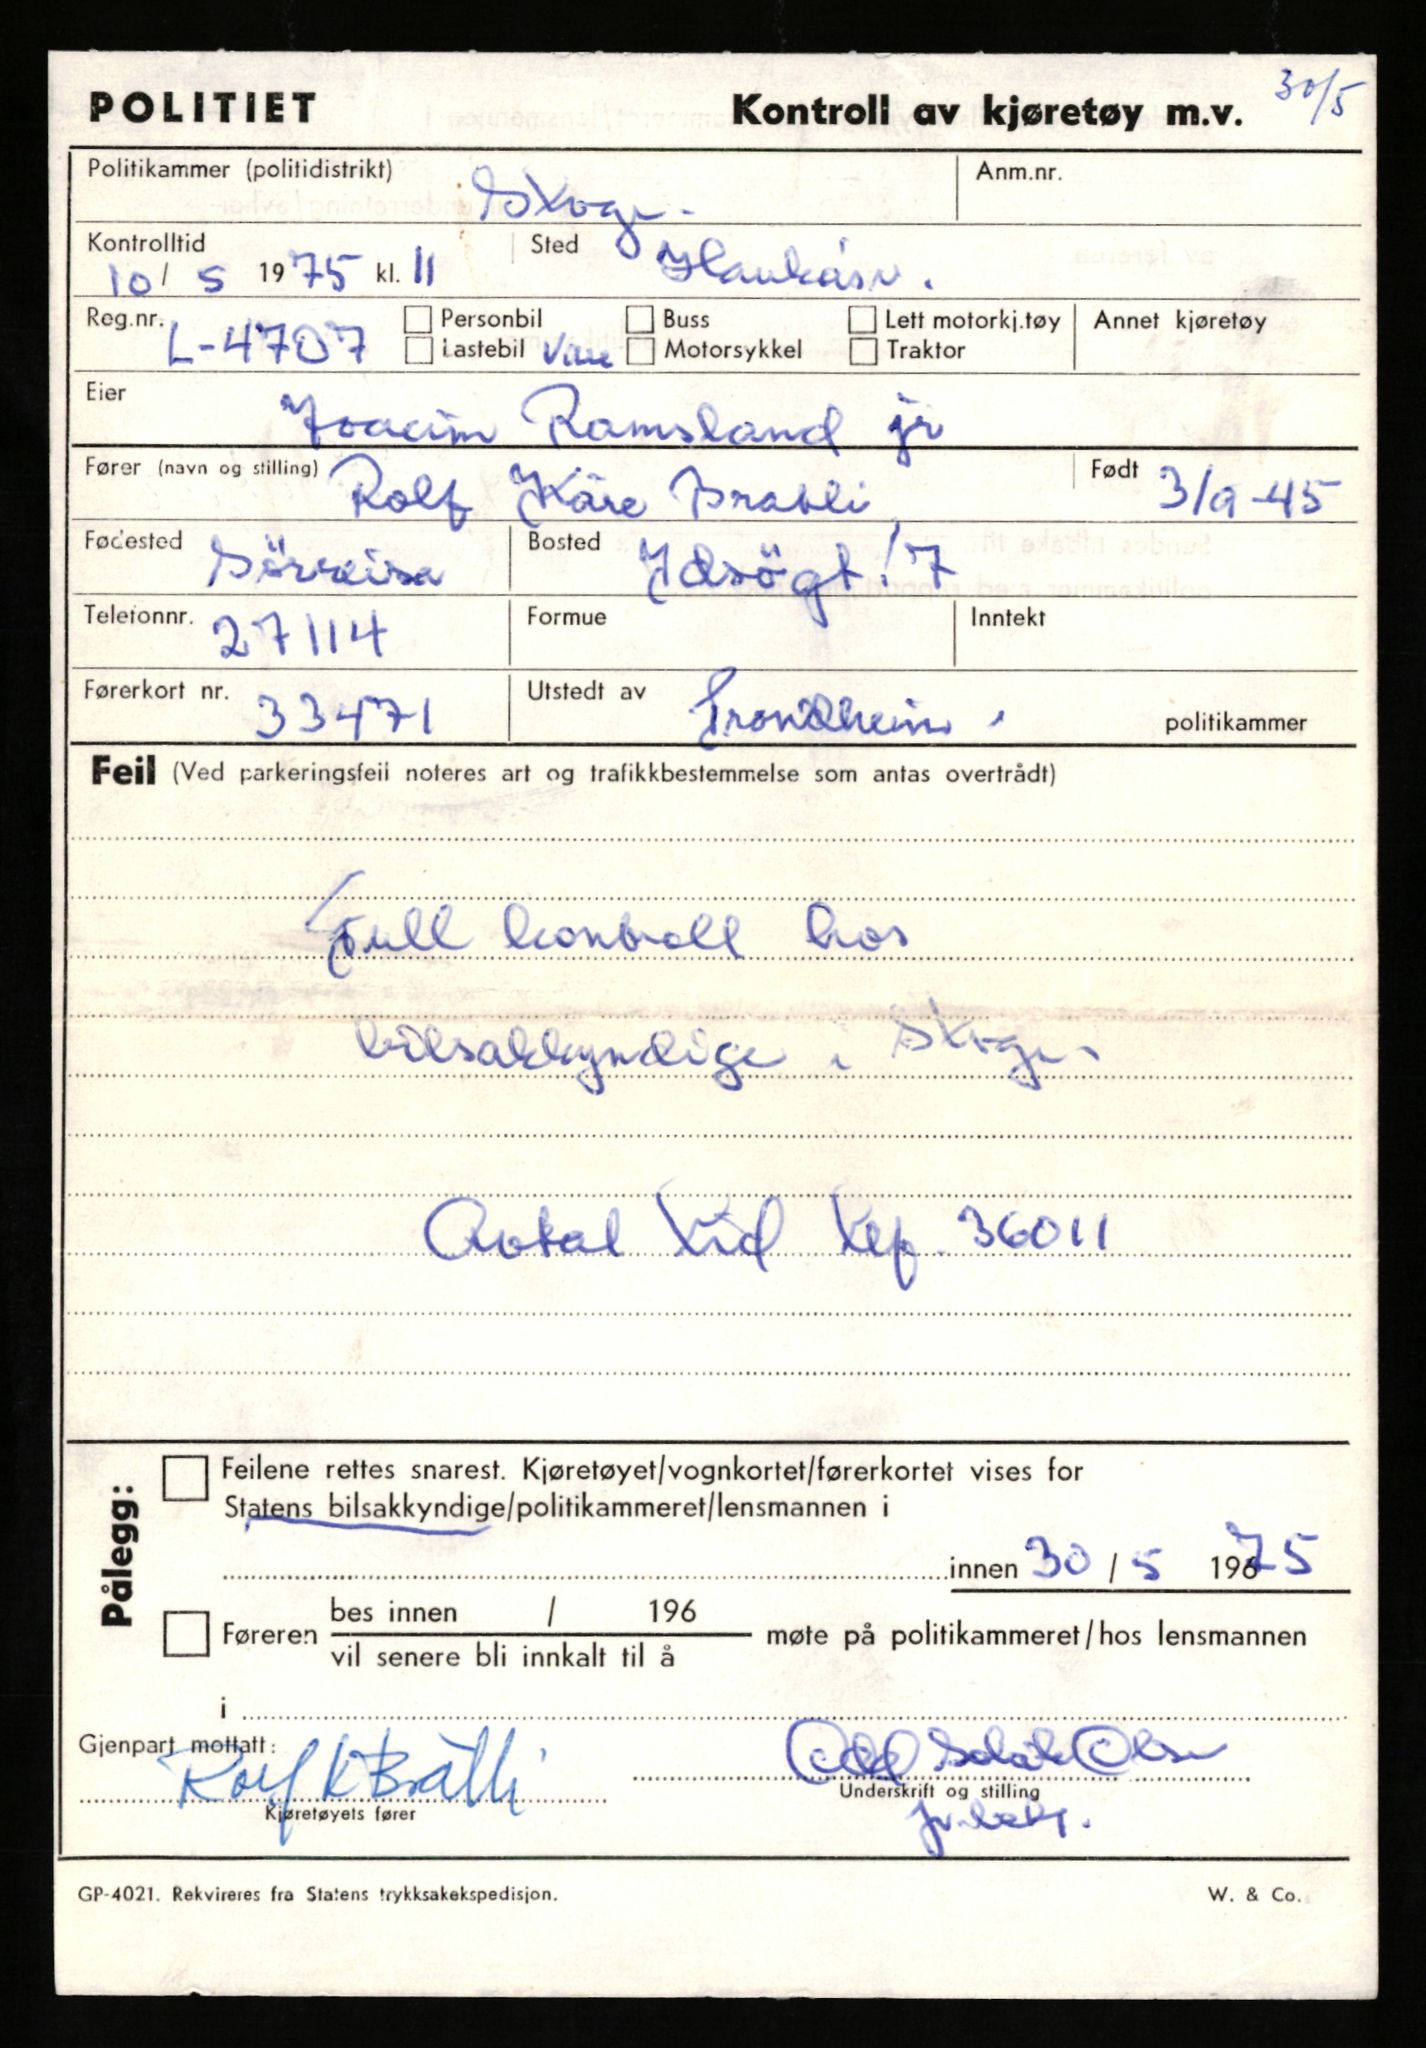 30/5
POLITIET Kontroll av kjøretøy m.v.
Politikammer (politidistrikt) Anm.nr.
Kontrolltid 10/5 1975 kl. 11 Sted
Reg.nr. L-4707 Personbil Buss Lett motorkj.tøy Annet kjøretøy
Lastebil Vare Motorsykkel Traktor
Eier Joacim Ramsland jr
Fører (navn og stilling) Rolf Kåre Bratli Født 3/9-45
Fødested Sörreisa Bosted 17
Telefonnr. 27114 Formue Inntekt
Førerkort nr. 33471 Utstedt av Trondheim politikammer
Feil (Ved parkeringsfeil noteres art og trafikkbestemmelse som antas overtrådt)
Full kontroll hos
bilsakkyndige i
Avtal tid tlf. 36011
Pålegg:
Feilene rettes snarest. Kjøretøyet/vognkortet/førerkortet vises for
Statens bilsakkyndige/politikammeret/lensmannen i
innen 30/5 19675
bes innen / 196
Føreren møte på politikammeret/hos lensmannen
vil senere bli innkalt til å
i
Gjenpart mottatt: Rolf K Bratli
Kjøretøyets fører Underskrift og stilling
GP-4021. Rekvireres fra Statens trykksakekspedisjon. W. & Co.